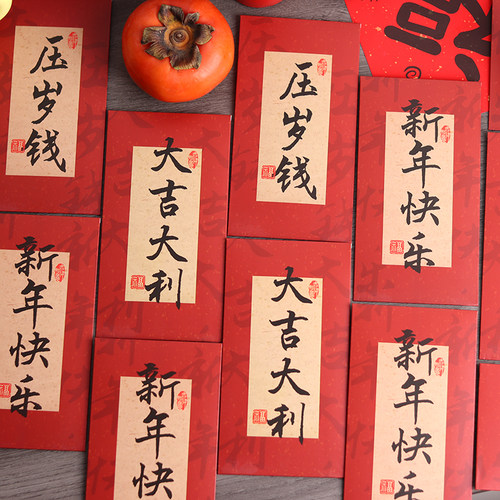 压岁钱
大吉大利
压岁钱
新年快乐
新年快乐
新年快
大吉大利
新年快乐